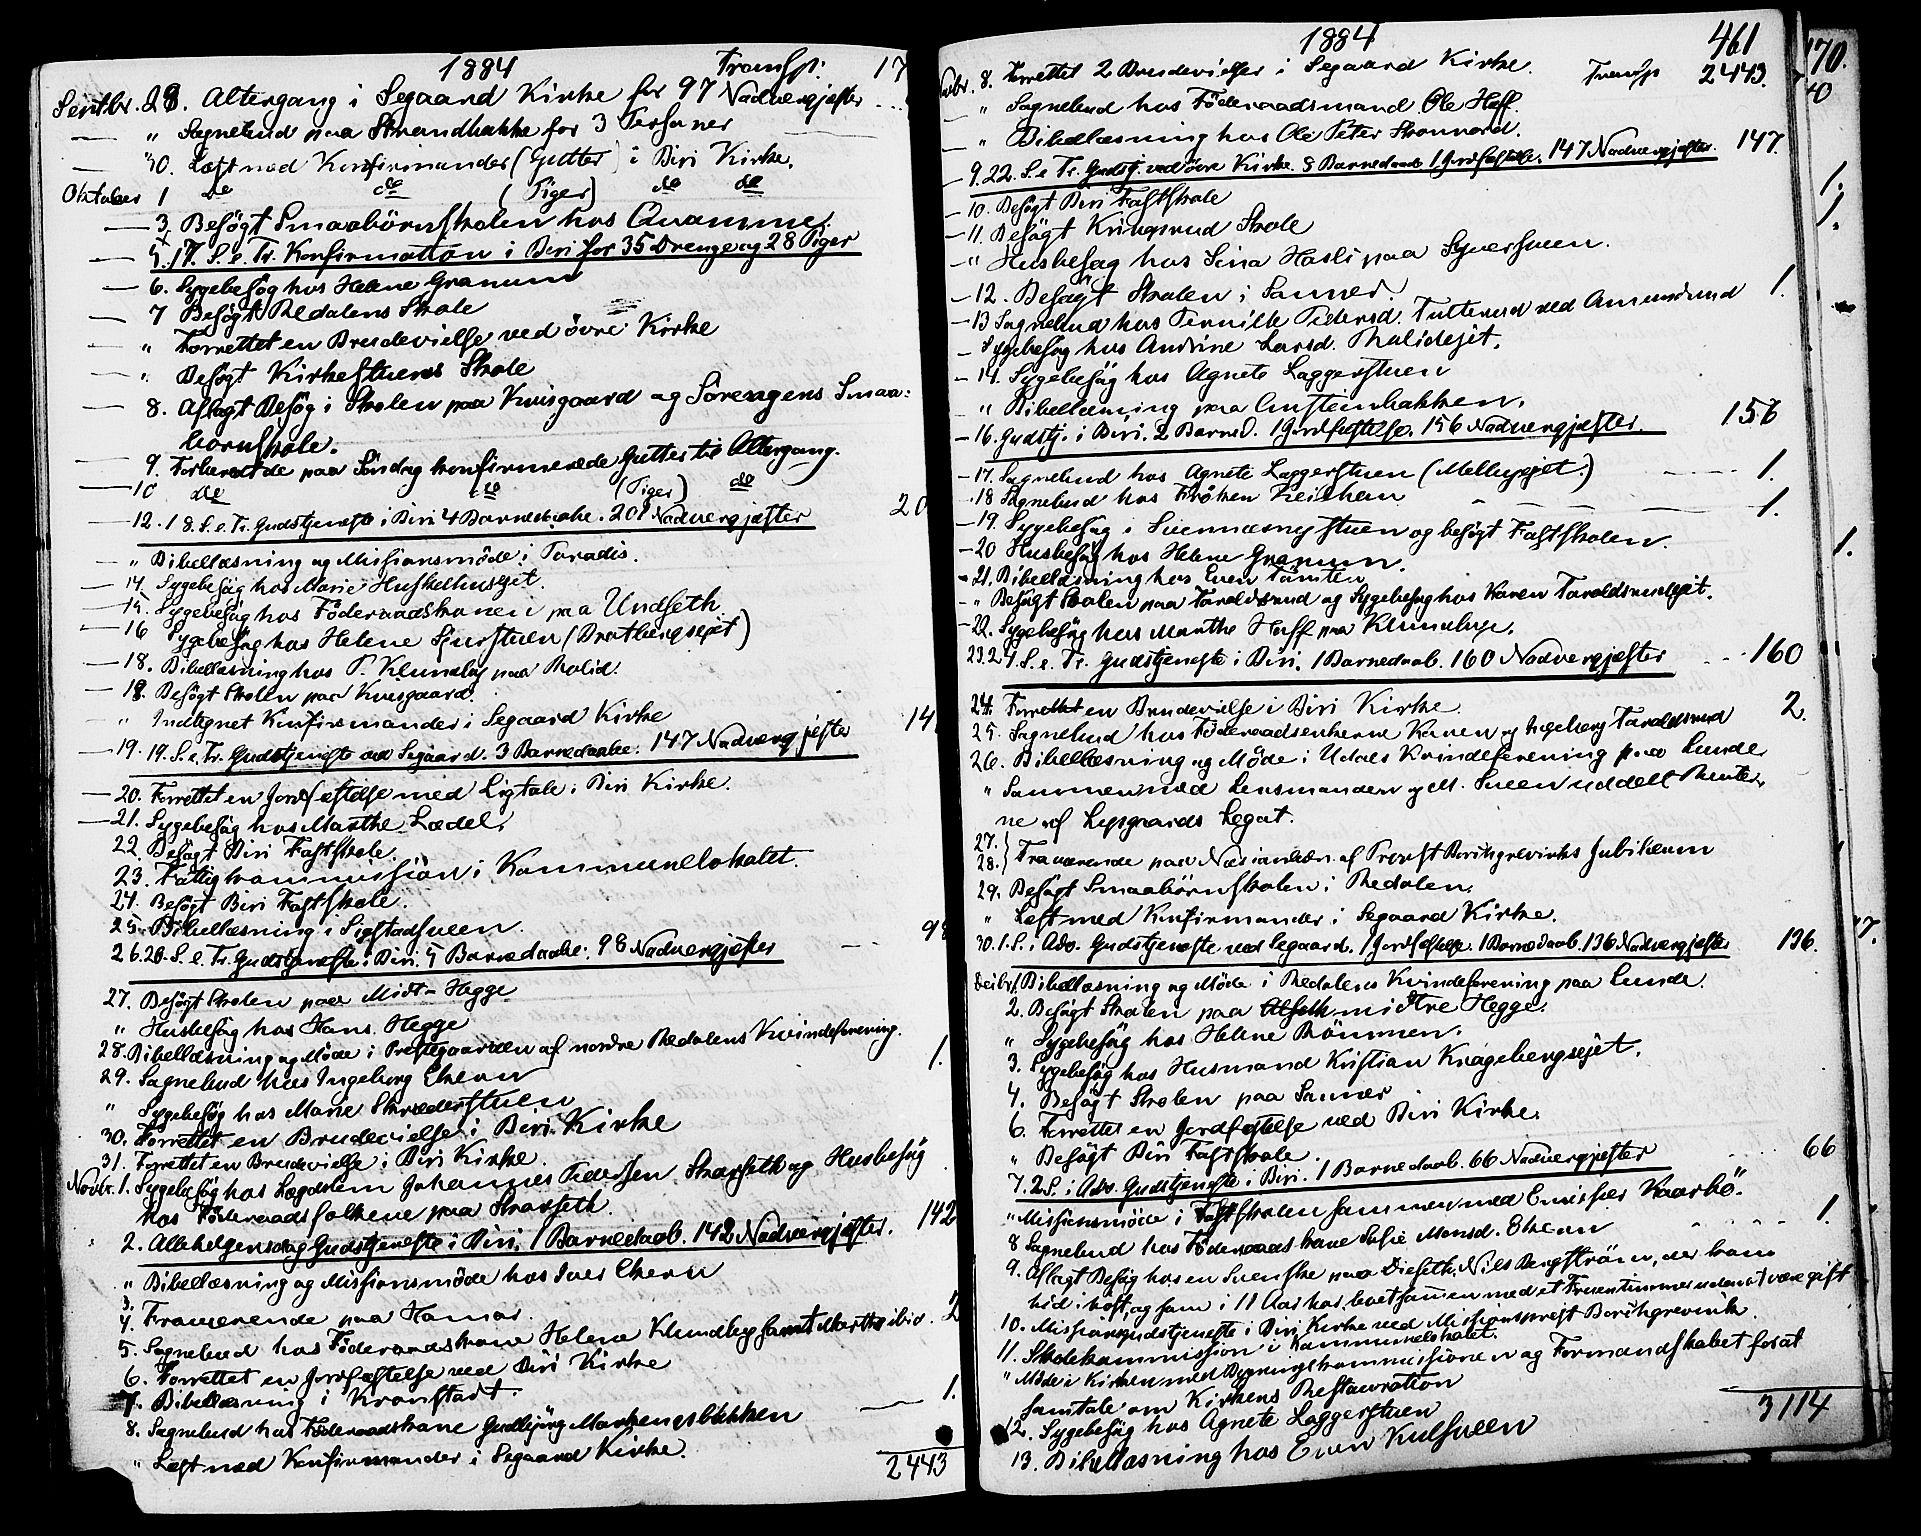 1884 Transp: 17
Septbr. 28. Altergang i Segaard Kirke for 97 Nadvergjæster
" Sognebud paa Strandbakke for 3 Personer
30. Læst med Konfirmander (Gutter) i Biri Kirke.
Oktober 1 do do (Piger) do do
3. Besøgt Smaabörnskolen hos Qvamme.
5. 17. S. e. Tr. Konfirmation i Biri for 35 Drenge og 28 Piger
6. Sygebesøg hos Helene Granum
7 Besøgt Redalens Skole
" Forrettet en Brudevielse ved övre Kirke
" Besøgt Kirkestuens Skole
8. Aflagt Besøg i Skolen paa Kvisgaard og Sörengens Smaa-
bornskole.
9. Forberedte paa Söndag konfirmerede Gutter til Altergang.
10 do do (Piger) do
12. 18. S. e. Tr. Gudstjeneste i Biri 4 Barnedaabe. 201 Nadvergjæster 20
" Bibellæsning og Missionsmöde i Paradis.
14. Sygebesøg hos Marie Huskelhusejet.
15. Sygebesøg hos Föderaadskonen paa Undseth
16 Sygebesøg hos Helene Sjurstuen (Bratbergsejet)
18. Bibellæsning hos P. Klundby paa Rolid.
18. Besøgt Skolen paa Kvisgaard.
" Indtegnet Konfirmander i Segaard Kirke
19. 19. S. e. Tr. Gudstjeneste ved Segaard. 3 Barnedaabe. 147 Nadvergjæster 14
20. Forrettet en Jordfæstelse med Ligtale i Biri Kirke.
21. Sygebesøg hos Marthe Lædel.
22. Besøgt Biri Fastskole.
23. Fattigkommission i Kommunelokalet.
24. Besøgt Biri Fastskole.
25. Bibellæsning i Sigstadsveen.
26. 20. S. e. Tr. Gudstjeneste i Biri. 5 Barnedaabe. 98 Nadvergjæster 98
27. Besøgt Skolen paa Midt-Hegge
" Husbesøg hos Hans Hegge
28. Bibellæsning og Möde i Præstegaarden af nordre Redalens Kvindeforening.
29. Sognebud hos Ingeborg Ekern 1.
" Sygebesøg hos Marie Skræderstuen
30. Forrettet en Brudevielse i Biri Kirke
31. Forrettet en Brudevielse i Biri Kirke.
Novbr. 1. Sygebesøg hos Lægdslem Johannes Pedersen Skarseth og Husbesøg
hos Föderaadsfolkene paa Skarseth.
2. Allehelgensdag Gudstjeneste i Biri. 1 Barnedaab. 142 Nadvergjæster. 142
" Bibellæsning og Missionsmöde hos Iver Ekern
3.
4. Fraværende paa Hamar.
5. Sognebud hos Föderaadskone Helene Klundby samt Marthe ibid. 2
6. Forrettet en Jordfæstelse ved Biri Kirke
7. Bibellæsning i Kronstadt.
8. Sognebud hos Föderaadskone Gudbjörg Markengsbakken 1.
" Læst med Konfirmander i Segaard Kirke.
2443
1884 461
Novbr. 8. Forrettet 2 Brudevielser i Segaard Kirke. Transp 2443.
" Sognebud hos Föderaadsmand Ole Hoff.
" Bibellæsning hos Ole Peter
9. 22. S. e Tr. Gudstj. ved övre Kirke. 8 Barnedaab. 1 Jordfæstelse. 147 Nadvergjæster. 147.
10. Besøgt Biri Fastskole
11. Besøgt Kringsrud Skole
" Husbesøg hos Sina Hasli paa Syversveen.
12. Besøgt Skolen i Sanner.
13 Sognebud hos Pernille Pedersd. Tutterud ved Amundrud 1.
Sygebesøg hos Andrine Larsd. Rolidejet.
14. Sygebesøg hos Agnete Laggerstuen
" Bibellæsning paa Austeinbakken.
16. Gudstj. i Biri. 2 Barned. 1 Jordfæstelse. 156 Nadvergjæster. 156
17. Sognebud hos Agnete Laggerstuen (Mellusejet.) 1.
18 Sognebud hos Fröken Keilhau 1.
19. Sygebesøg i Svennesnystuen og besøgt Fastskolen.
20 Husbesøg hos Helene Granum.
21. Bibellæsning hos Even Tömten
" Besøgt Skolen paa Taraldsrud og Sygebesøg hos Karen Taraldsrudejet.
22. Sygebesøg hos Marthe Hoff paa Klundby.
23. 24 S. e. Tr. Gudstjeneste i Biri. 1 Barnedaab. 160 Nadvergjæster 160
24. Forrettet en Brudevielse i Biri Kirke.
25. Sognebud hos Föderaadsenkerne Karen og Ingeborg Taraldsrud 2.
26. Bibellæsning og Möde i Udals Kvindeforening paa Lunde
" Sammen med Lensmanden og M. Sveen uddelt Renter-
ne af Lysgaards Legat.
27.
28. Fraværende paa Næs i anledn. af Provst Borchgrevinks Jubilæum
29. Besøgt Smaabörnskolen i Redalen.
" Læst med Konfirmander i Segaard Kirke.
30. 1. S. i Adv. Gudstjeneste ved Segaard. 1 Jordfæstelse. 1 Barnedaab. 136 Nadvergjæster 136.
Decbr 1. Bibellæsning og Möde i Redalens Kvindeforening paa Lunde.
2. Besøgt Skolen paa midtre Hegge.
" Sygebesøg hos Helene Römmen.
3. Sygebesøg hos Husmand Kristian Knagebergsejet.
4. Besøgt Skolen paa Sanner
6. Forrettet en Jordfæstelse ved Biri Kirke.
" Besøgt Biri Fastskole.
7. 2. S. i Adv. Gudstjeneste i Biri. 1 Barnedaab. 66 Nadvergjæster 66
" Missionsmöde i Fastskolen sammen med Emissær Kaarbö.
8 Sognebud hos Föderaadskone Sofie Monsd. Ekern 1.
9. Aflagt Besøg hos en Svenske paa Dieseth, Niels Bergström, der kom
hid i höst, og som i 11 Aar har levet sammen med et Fruentimmer uden at være gift
10. Missionsgudstjeneste i Biri Kirke ved Missionsprest Borchgrevink.
11. Skolekommission i Kommunelokalet.
" Möde i Kirken med Bygningskommissionen og Formandskabet for at
samtale om Kirkens Restauration
12. Sygebesøg hos Agnete Laggerstuen
13. Bibellæsning hos Even Kulsveen
3114
170.
40
1.
1.
1.
7.